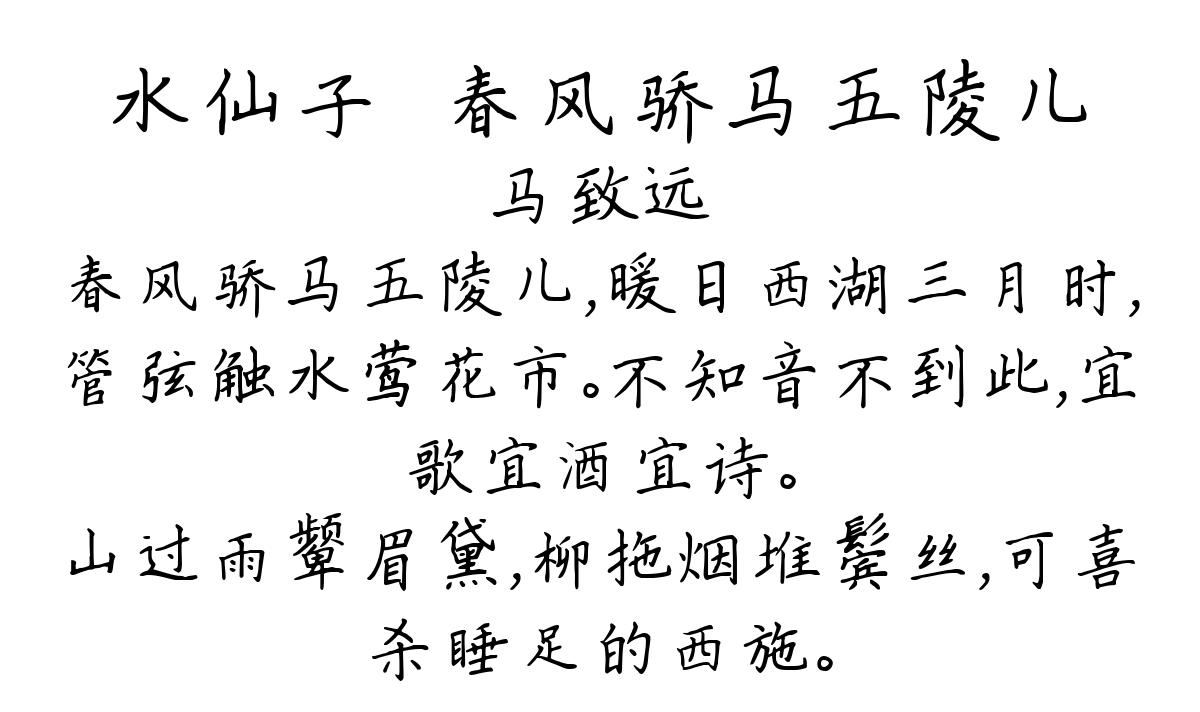 水仙子 春风骄马五陵儿
马致远
春风骄马五陵儿,暖日西湖三月时,
管弦触水莺花市。不知音不到此,宜
歌宜酒宜诗。
山过雨颦眉黛,柳拖烟堆鬓丝,可喜
杀睡足的西施。